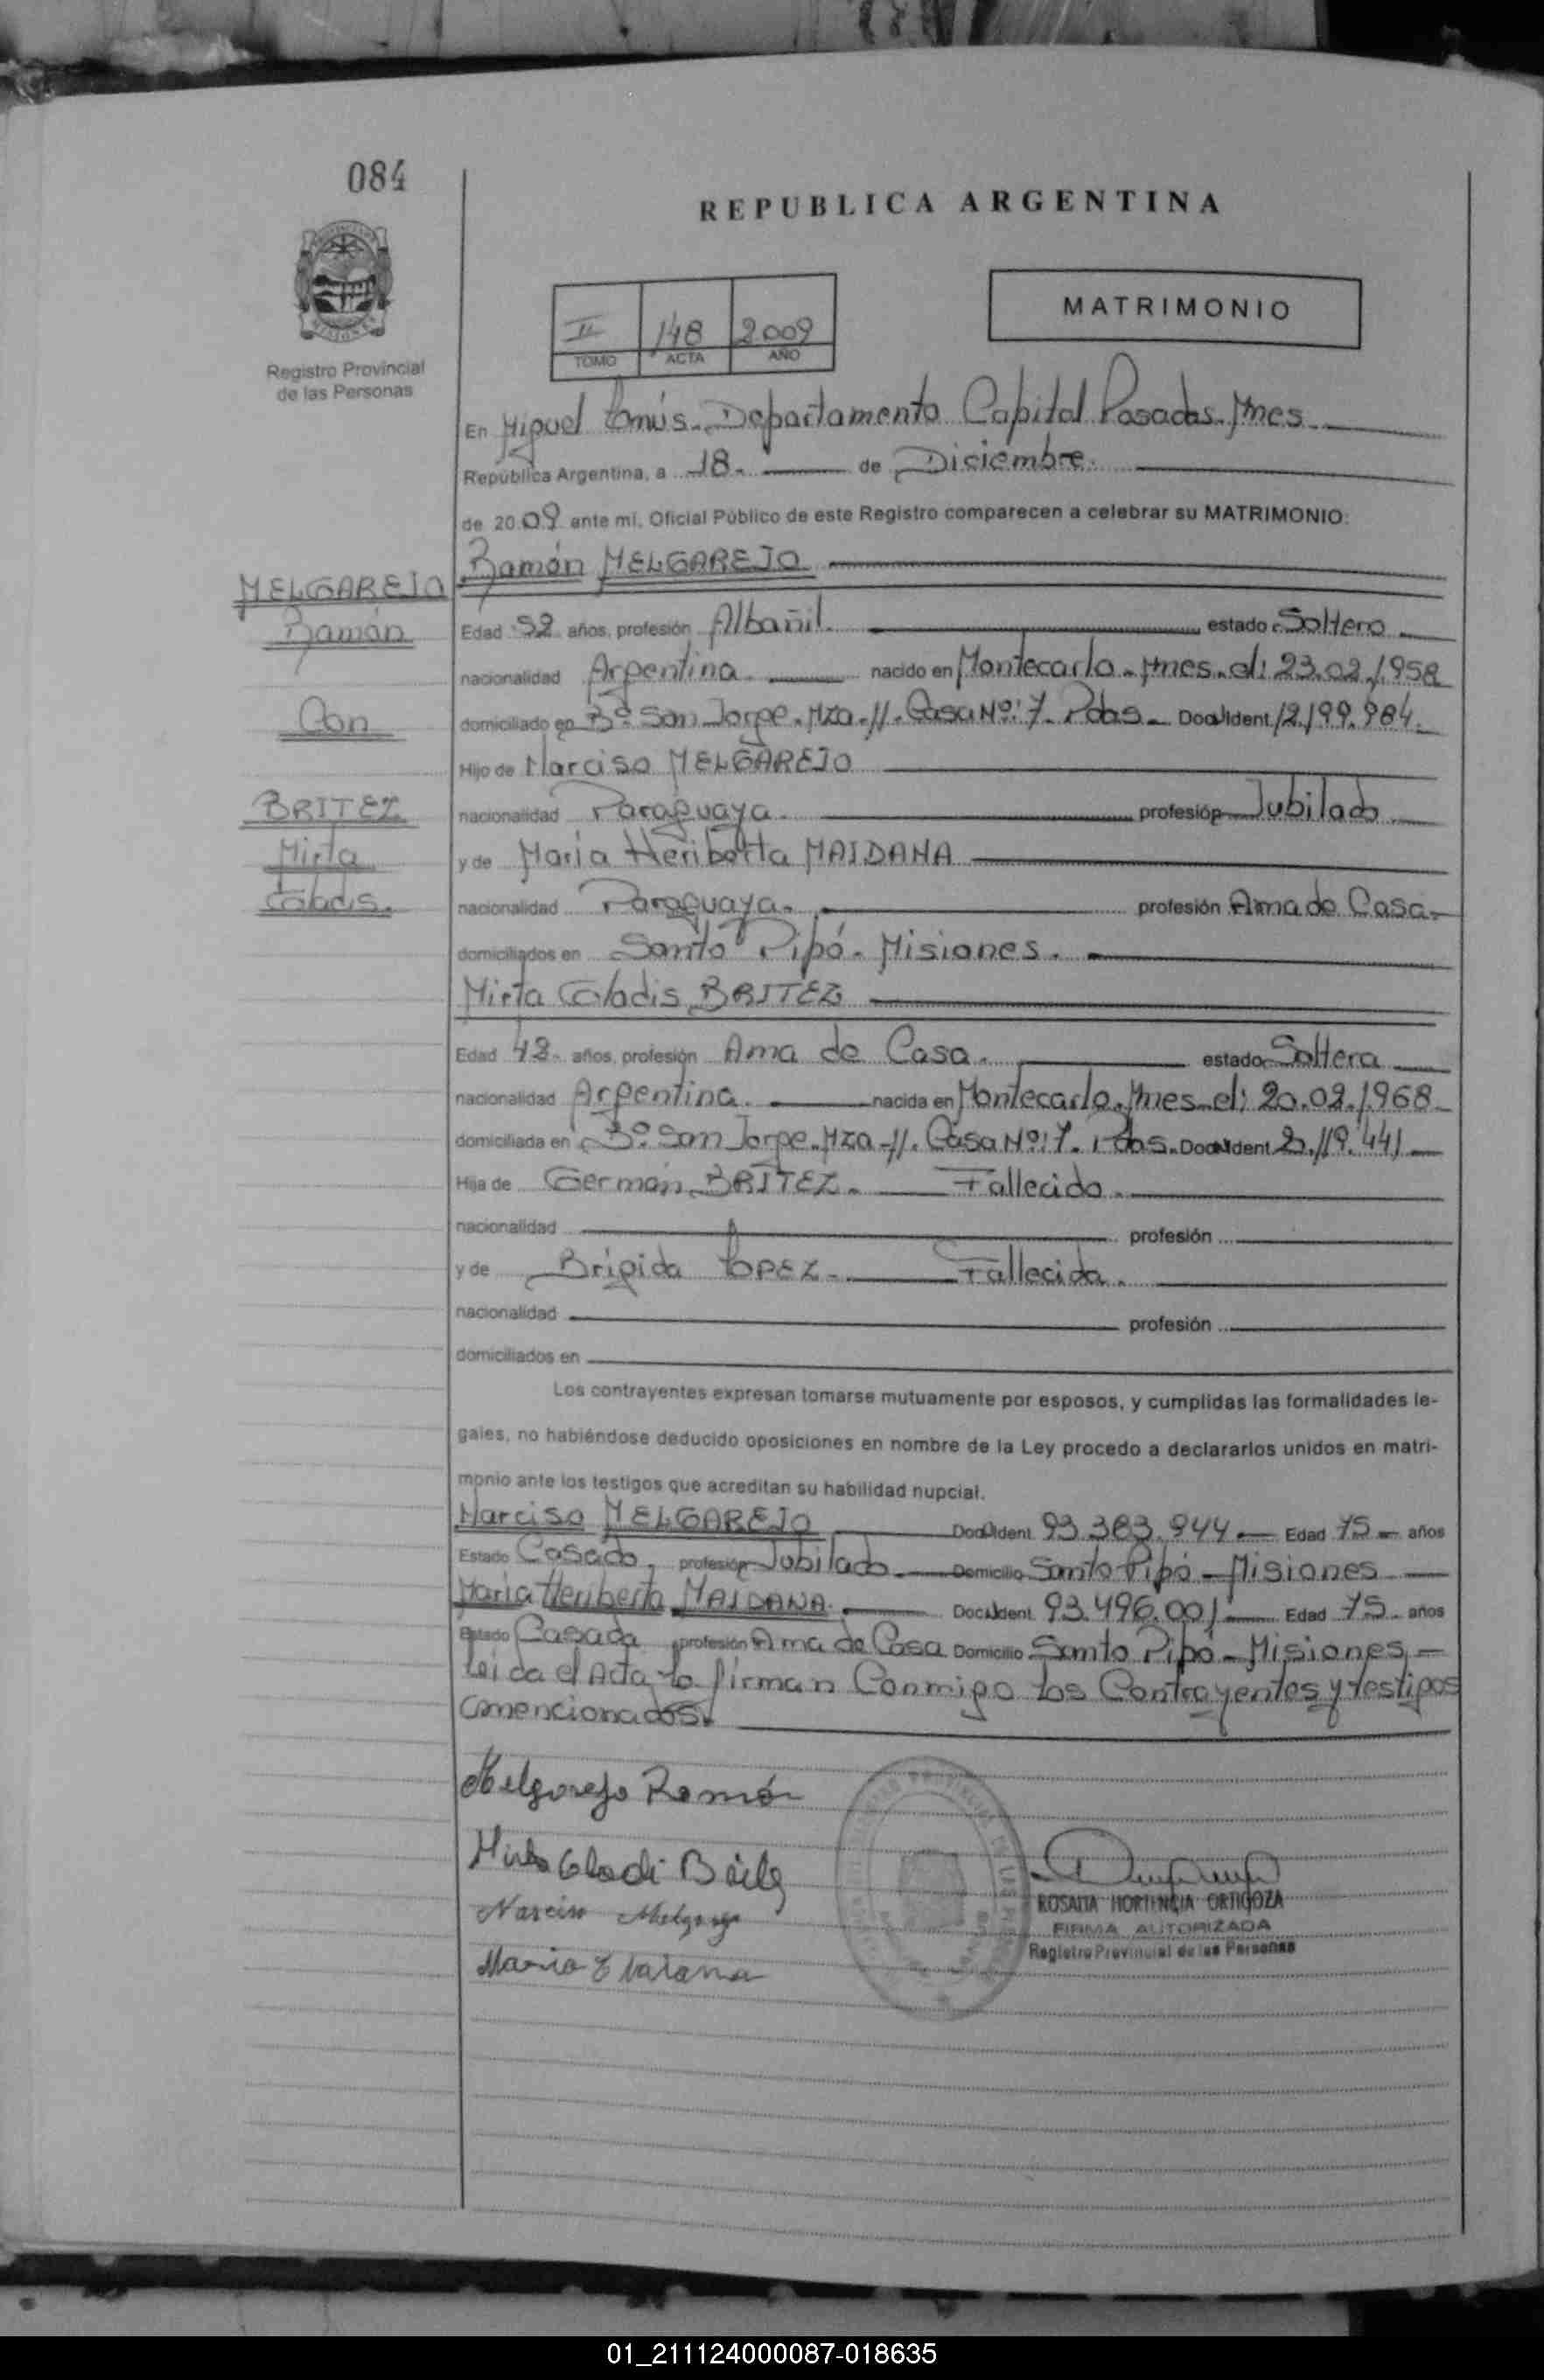 084
REPUBLICA ARGENTINA
Registro Provincial
de las Personas
II 148 2009
TOMO ACTA AÑO
MATRIMONIO
En Miguel Lanús. Departamento Capital Posadas. Mnes
República Argentina, a 18. de Diciembre.
de 2009 ante mí, Oficial Público de este Registro comparecen a celebrar su MATRIMONIO:
Ramón MELGAREJO
MELGAREJO
Ramón
Con
BRITEZ
Mirta
Gladis.
Edad 52 años, profesión Albañil. estado Soltero
nacionalidad Argentina. nacido en Montecarlo. Mnes. el: 23.02.1958
domiciliado en Bº San Jorge. Mza. 11. Casa Nº: 7. Pdas. Doc. Ident. 12.199.984.
Hijo de Narciso MELGAREJO
nacionalidad Paraguaya. profesión Jubilado
y de María Heriberta MAIDANA
nacionalidad Paraguaya. profesión Ama de Casa.
domiciliados en Santo Pipó. Misiones.
Mirta Gladis BRITEZ
Edad 42. años, profesión Ama de Casa. estado Soltera
nacionalidad Argentina. nacida en Montecarlo. Mnes. el: 20.02.1968
domiciliada en Bº San Jorge. Mza. 11. Casa Nº: 7. Pdas. Doc. Ident. 20.119.441
Hija de Germán BRITEZ. Fallecido.
nacionalidad profesión
y de Brígida LOPEZ. Fallecida.
nacionalidad profesión
domiciliados en
Los contrayentes expresan tomarse mutuamente por esposos, y cumplidas las formalidades le-
gales, no habiéndose deducido oposiciones en nombre de la Ley procedo a declararlos unidos en matri-
monio ante los testigos que acreditan su habilidad nupcial.
Narciso MELGAREJO Doc. Ident. 93.383.944. Edad 75 años
Estado Casado, profesión Jubilado. Domicilio Santo Pipó - Misiones
María Heriberta MAIDANA. Doc. Ident. 93.496.001 Edad 75. años
Estado Casada profesión Ama de Casa Domicilio Santo Pipó - Misiones,
Leída el Acta la firman Conmigo Los Contrayentes y testigos
mencionados.
Melgarejo Ramón
Mirta Gladi Britez
Narciso Melgarejo
ROSALIA HORTENCIA ORTIGOZA
FIRMA AUTORIZADA
Registro Provincial de las Personas
01_211124000087-018635